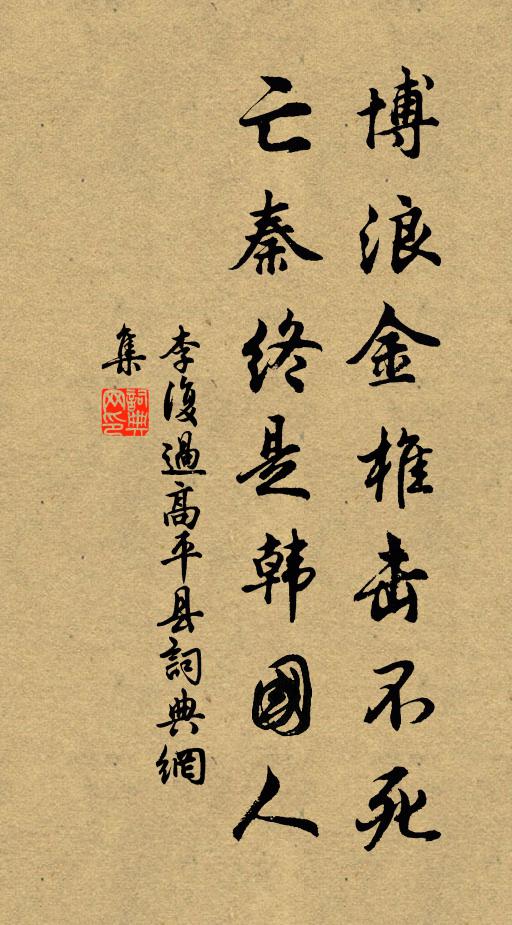 博浪金椎击不死
亡秦终是韩國人
李復過高平县詞典網
集
詞典网印